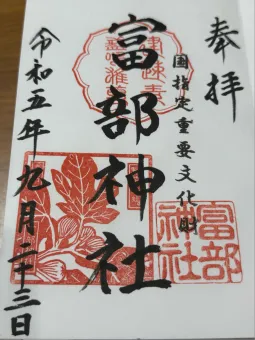 奉拝
国指定重要文化財
富部神社
富部
神社
令和五年九月二十三日